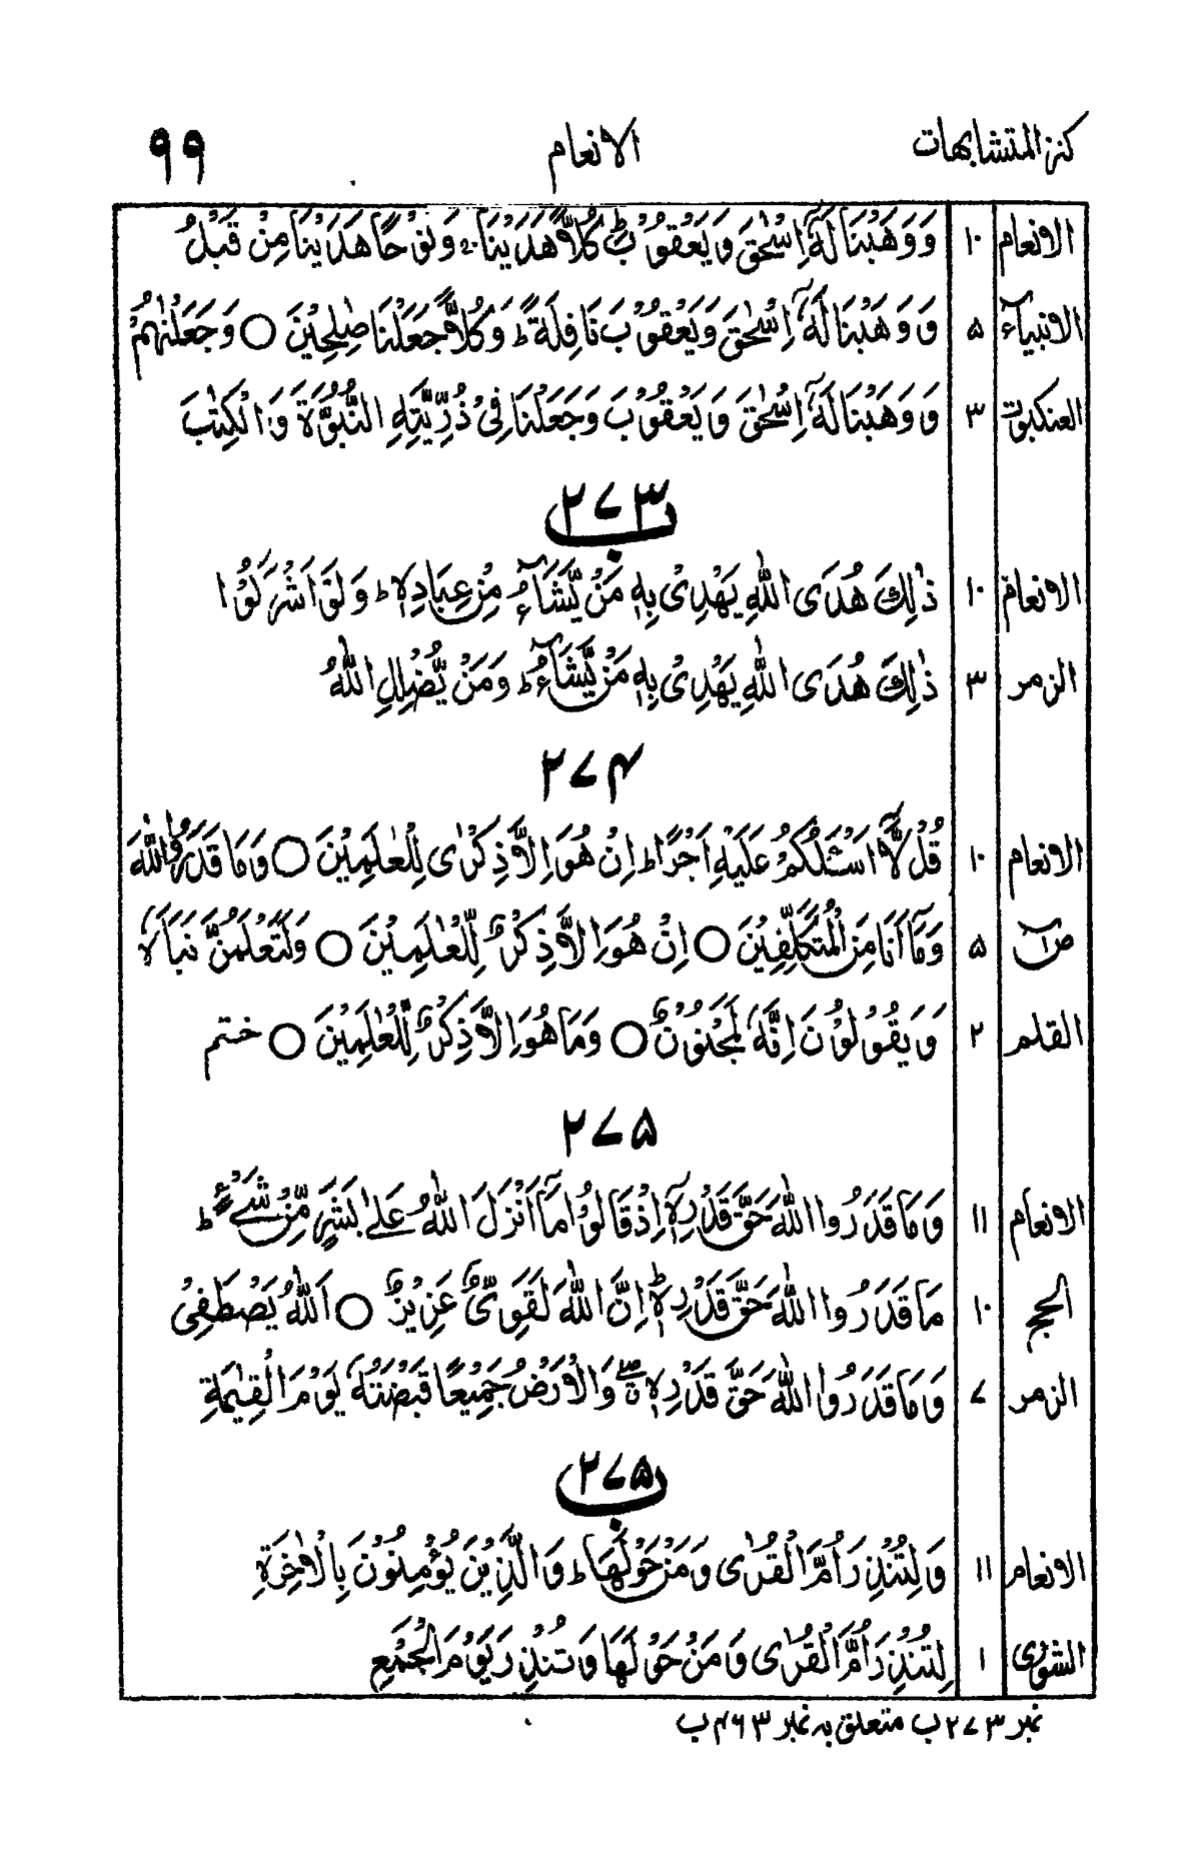 كنز المتشابهات الانعام ٩٩
الانعام ١٠ وَوَهَبْنَا لَهٗٓ اِسْحٰقَ وَيَعْقُوْبَ ط كُلًّا هَدَيْنَا ج وَنُوْحًا هَدَيْنَا مِنْ قَبْلُ
الانبیآء ۵ وَوَهَبْنَا لَهٗٓ اِسْحٰقَ وَيَعْقُوْبَ نَافِلَةً ط وَكُلًّا جَعَلْنَا صٰلِحِيْنَ ○ وَجَعَلْنٰهُمْ
العنكبوت ٣ وَوَهَبْنَا لَهٗٓ اِسْحٰقَ وَيَعْقُوْبَ وَجَعَلْنَا فِيْ ذُرِّيَّتِهِ النُّبُوَّةَ وَالْكِتٰبَ
٢٧٣ ب
الانعام ١٠ ذٰلِكَ هُدَى اللّٰهِ يَهْدِيْ بِهٖ مَنْ يَّشَآءُ مِنْ عِبَادِهٖ ط وَلَوْ اَشْرَكُوْا
الزمر ٣ ذٰلِكَ هُدَى اللّٰهِ يَهْدِيْ بِهٖ مَنْ يَّشَآءُ ط وَمَنْ يُّضْلِلِ اللّٰهُ
٢٧۴
الانعام ١٠ قُلْ لَّآ اَسْـَٔلُكُمْ عَلَيْهِ اَجْرًا ط اِنْ هُوَ اِلَّا ذِكْرٰى لِلْعٰلَمِيْنَ ○ وَمَا قَدَرُوا اللّٰهَ
صٓ ۵ وَمَآ اَنَا مِنَ الْمُتَكَلِّفِيْنَ ○ اِنْ هُوَ اِلَّا ذِكْرٌ لِّلْعٰلَمِيْنَ ○ وَلَتَعْلَمُنَّ نَبَاَهٗ
القلم ٢ وَيَقُوْلُوْنَ اِنَّهٗ لَمَجْنُوْنٌ ○ وَمَا هُوَ اِلَّا ذِكْرٌ لِّلْعٰلَمِيْنَ ○ ختم
٢٧۵
الانعام ١١ وَمَا قَدَرُوا اللّٰهَ حَقَّ قَدْرِهٖٓ اِذْ قَالُوْا مَآ اَنْزَلَ اللّٰهُ عَلٰى بَشَرٍ مِّنْ شَيْءٍ ط
الحج ١٠ مَا قَدَرُوا اللّٰهَ حَقَّ قَدْرِهٖ ط اِنَّ اللّٰهَ لَقَوِيٌّ عَزِيْزٌ ○ اَللّٰهُ يَصْطَفِيْ
الزمر ٧ وَمَا قَدَرُوا اللّٰهَ حَقَّ قَدْرِهٖ وَالْاَرْضُ جَمِيْعًا قَبْضَتُهٗ يَوْمَ الْقِيٰمَةِ
٢٧۵ ب
الانعام ١١ وَلِتُنْذِرَ اُمَّ الْقُرٰى وَمَنْ حَوْلَهَا ط وَالَّذِيْنَ يُؤْمِنُوْنَ بِالْاٰخِرَةِ
الشورٰى ١ لِتُنْذِرَ اُمَّ الْقُرٰى وَمَنْ حَوْلَهَا وَتُنْذِرَ يَوْمَ الْجَمْعِ
نمبر ٢٧٣ ب متعلق بہ نمبر ۴٦٣ ب